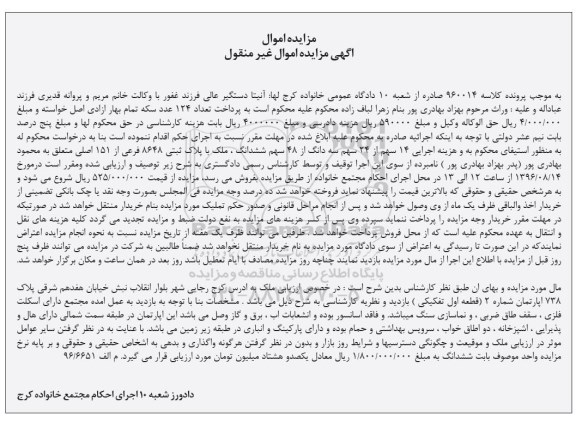 مزایده اموال
آگهی مزایده اموال غیر منقول
به موجب پرونده کلاسه ۹۶۰۰۱۴ صادره از شعبه ۱۰ دادگاه عمومی خانواده کرج لها: آنیتا دستگیر عالی فرزند غفور با وکالت خانم مریم و پروانه قدیری فرزند
عباداله و علیه : وراث مرحوم بهزاد بهادری پور بنام زهرا لباف زاده محکوم علیه محکوم است به پرداخت تعداد ۱۲۴ عدد سکه تمام بهار آزادی اصل خواسته و مبلغ
۴/۰۰۰/۰۰۰ ریال حق الوکاله وکیل و مبلغ ۵۹۰۰۰۰ ریال هزینه دادرسی و مبلغ ۴۰۰۰۰۰۰ ریال بابت هزینه کارشناسی در حق محکوم لها و مبلغ پنج درصد
بابت نیم عشر دولتی با توجه به اینکه اجرائیه صادره به محکوم علیه ابلاغ شده در مهلت مقرر نسبت به اجرای حکم اقدام ننموده است بنا به درخواست محکوم له
به منظور استیفای محکوم به و هزینه اجرایی ۱۴ سهم از ۲۴ سهم سه دانگ از ۴۸ سهم ششدانگ ، ملک با پلاک ثبتی ۸۶۴۸ فرعی از ۱۵۱ اصلی متعلق به محمود
بهادری پور (پدر بهزاد بهادری پور ) نامبرده از سوی این اجرا توقیف و توسط کارشناس رسمی دادگستری به شرح زیر توصیف و ارزیابی شده ومقرر است درمورخ
۱۳۹۶/۰۸/۱۴ از ساعت ۱۲ الی ۱۳ در محل اجرای احکام مجتمع خانواده از طریق مزایده بفروش می رسد، مزایده از قیمت ۵۲۵/۰۰۰/۰۰۰ ریال شروع می شود و
به هرشخص حقیقی و حقوقی که بالاترین قیمت را پیشنهاد نماید فروخته خواهد شد ده درصد وجه مزایده فی المجلس بصورت وجه نقد یا چک بانکی تضمینی از
خریدار اخذ والباقی ظرف یک ماه از وی وصول خواهد شد و پس از انجام مراحل قانونی و صدور حکم تملیک مورد مزایده بنام خریدار منتقل خواهد شد در صورتیکه
در مهلت مقرر خریدار وجه مزایده را پرداخت ننماید سپرده وی پس از کسر هزینه های مزایده به نفع دولت ضبط و مزایده تجدید می گردد کلیه هزینه های نقل
و انتقال به عهده محکوم علیه است که از محل فروش پرداخت خواهد شد. طرفین می توانند ظرف یک هفته از تاریخ مزایده نسبت به نحوه انجام مزایده اعتراض
نمایندکه در این صورت تا رسیدگی به اعتراض از سوی دادگاه مورد مزایده به نام خریدار منتقل نخواهد شد ضمنا طالبین به شرکت در مزایده می توانند ظرف پنج
روز قبل از مزایده با اطلاع این اجرا از مال مورد مزایده بازدید نمایند چنانچه روز مزایده مصادف با ایام تعطیل باشد روز بعد در همان ساعت و مکان برگزار خواهد شد.
پایگاه اطلاع رسانی مناقصه و مزایده
مال مورد مزایده و بهای آن طبق نظر کارشناس بدین شرح است : در خصوص ارزیابی ملک به آدرس کرج رجایی شهر بلوار انقلاب نبش خیابان هفدهم شرقی پلاک
۷۳۸ آپارتمان شماره ۲ (قطعه اول تفکیکی ) بازدید و نظریه کارشناسی به شرح ذیل می باشد . مشخصات بنا با توجه به بازدید به عمل آمده مجتمع دارای اسکلت
فلزی ، سقف طاق ضربی ، و نماسازی سنگ میباشد. و فاقد آسانسور بوده و انشعابات آب ، برق و گاز وصل می باشد این آپارتمان در طبقه سمت شمالی دارای هال و
پذیرایی ، آشپزخانه ، دو اطاق خواب ، سرویس بهداشتی و حمام بوده و دارای پارکینگ و انباری در طبقه زیر زمین می باشد. با عنایت به در نظر گرفتن سایر عوامل
موثر در ارزیابی ملک و موقعیت و چگونگی دسترسیها و شرایط روز بازار و بدون در نظر گرفتن هرگونه واگذاری و بدهی به اشخاص حقیقی و حقوقی و بر پایه نرخ
مزایده واحد موصوف بابت ششدانگ به مبلغ ۱/۸۰۰/۰۰۰/۰۰۰ ریال معادل یکصدو هشتاد میلیون تومان مورد ارزیابی قرار می گیرد. م الف ۹۶/۶۶۵۱
دادورز شعبه ۱۰ اجرای احکام مجتمع خانواده کرج